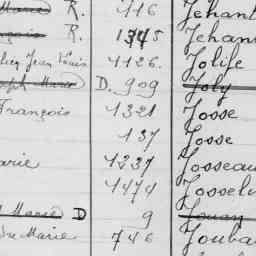 Marie R. 716 Jehant
François R. 1345 Jehan
Jean Louis 1126. Jolife
Joseph Marie D. 909 Joly
François 1321 Josse
137 Josse
arie 1237 Josseau
1474 Josseli
Marie D 9 Jouan
Marie 746 Jouba